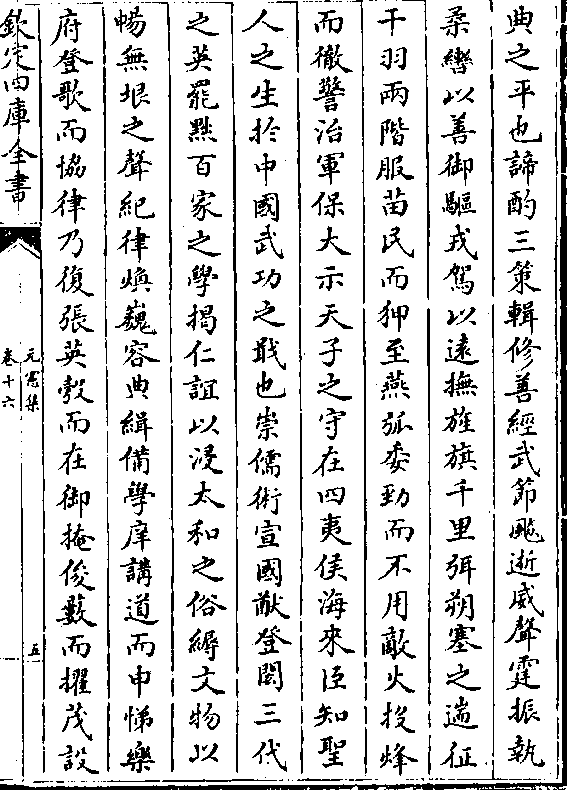 典之平也諦酌三策輯修善經武節颮逝威聲霆振執
柔轡以善御驅戎駕以遠撫旌旗千里弭朔塞之遄征
干羽兩階服苗民而狎至燕弧委勁而不用敵火投烽
而徹警治軍保大示天子之守在四夷侯海來臣知聖
人之生於中國武功之戢也崇儒術宣國猷登閎三代
之英罷黜百家之學揭仁誼以浸太和之俗縟文物以
暢無垠之聲紀律煥巍容典緝備學庠講道而申悌樂
府登歌而協律乃復張英彀而在御掩俊藪而擢茂設
欽定四庫全書
元憲集
卷十六
五